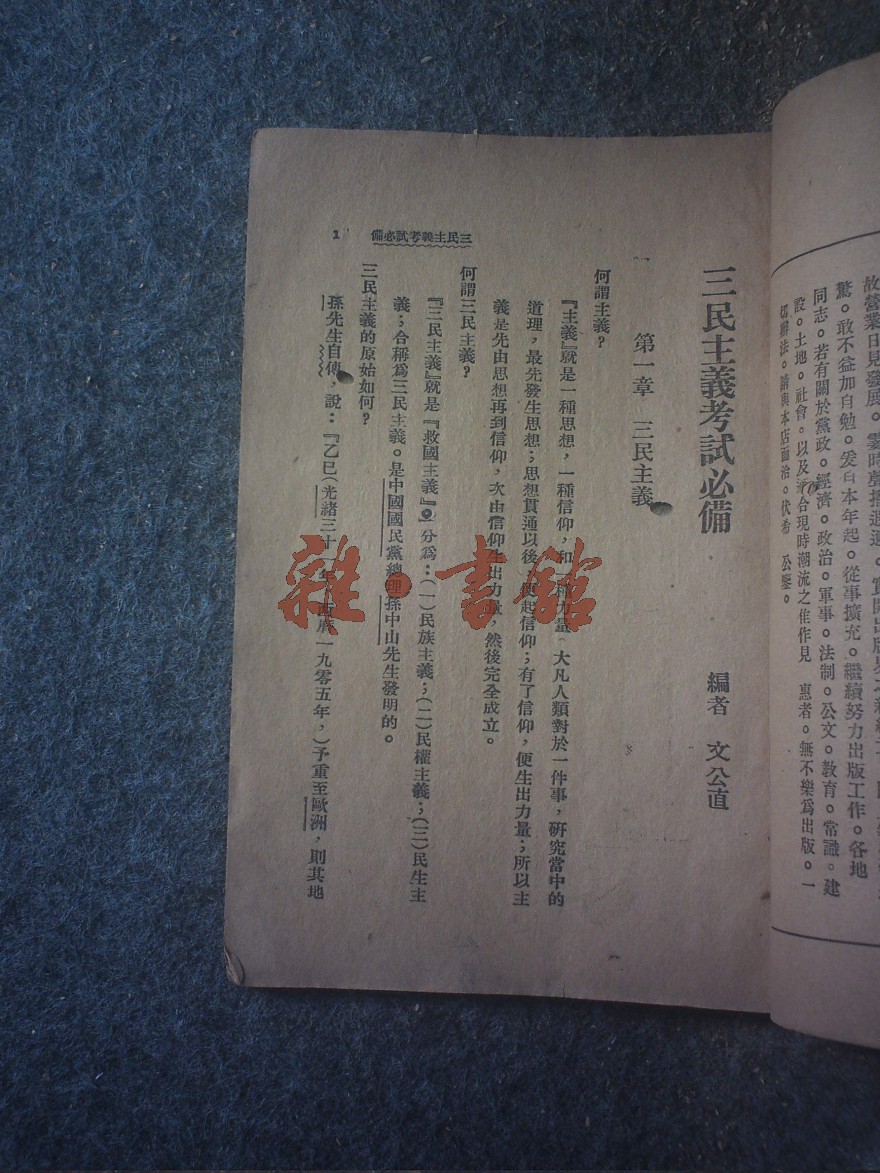 故營業日見發展。
驚。敢不益加自勉。爰自本年起。從事擴充。繼續努力出版工作。各地
同志。若有關於黨政。經濟。政治。軍事。法制。公文。教育。常識。建
設。土地。社會。以及適合現時潮流之佳作見 惠者。無不樂爲出版。一
切辦法。請與本店面洽。伏希 公鑒。
三民主義考試必備
編者 文公直
第一章 三民主義
何謂主義?
『主義』就是一種思想,一種信仰,和一種力量。大凡人類對於一件事,研究當中的
道理,最先發生思想;思想貫通以後,便起信仰;有了信仰,便生出力量;所以主
義是先由思想再到信仰,次由信仰生出力量,然後完全成立。
何謂三民主義?
『三民主義』就是『救國主義』。分爲:(一)民族主義;(二)民權主義;(三)民生主
義;合稱爲三民主義。是中國國民黨總理孫中山先生發明的。
三民主義的原始如何?
孫先生自傳,說:『乙巳(光緒三十一年,西曆一九零五年,)予重至歐洲,則其地
三民主義考試必備
1
雜·書館